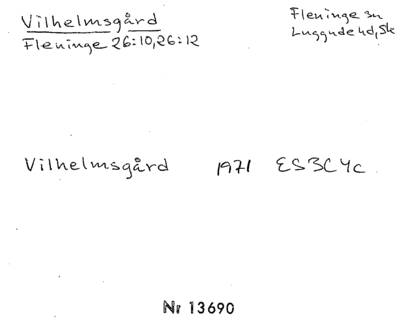 Vilhelmsgård
Fleninge 26:10, 26:12
Fleninge sn
Luggude hd, Sk
Vilhelmsgård 1971 ES3C4c
Nr 13690